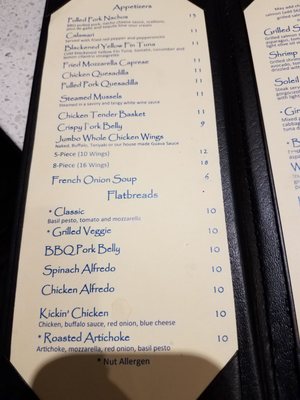 Appetizers
Pulled Pork Nachos 13
BBQ pulled pork, nacho cheese sauce, scallions,
Calamari 11
Served with fried red pepper and pepperoncini
Blackened Yellow Fin Tuna 11
Fried Mozzarella Caprese 11
Chicken Quesadilla 11
Pulled Pork Quesadilla 11
Steamed Mussels 11
Steamed in a savory and tangy white wine sauce
Chicken Tender Basket 11
Crispy Pork Belly 9
Jumbo Whole Chicken Wings
Naked, Buffalo, Teriyaki or our house made Guava Sauce
5-Piece (10 Wings) 12
8-Piece (16 Wings) 18
French Onion Soup 6
Flatbreads
* Classic 10
Basil pesto, tomato and mozzarella
* Grilled Veggie 10
BBQ Pork Belly 10
Spinach Alfredo 10
Chicken Alfredo 10
Kickin' Chicken 10
Chicken, buffalo sauce, red onion, blue cheese
* Roasted Artichoke 10
Artichoke, mozzarella, red onion, basil pesto
* Nut Allergen
Grilled S
Shrimp